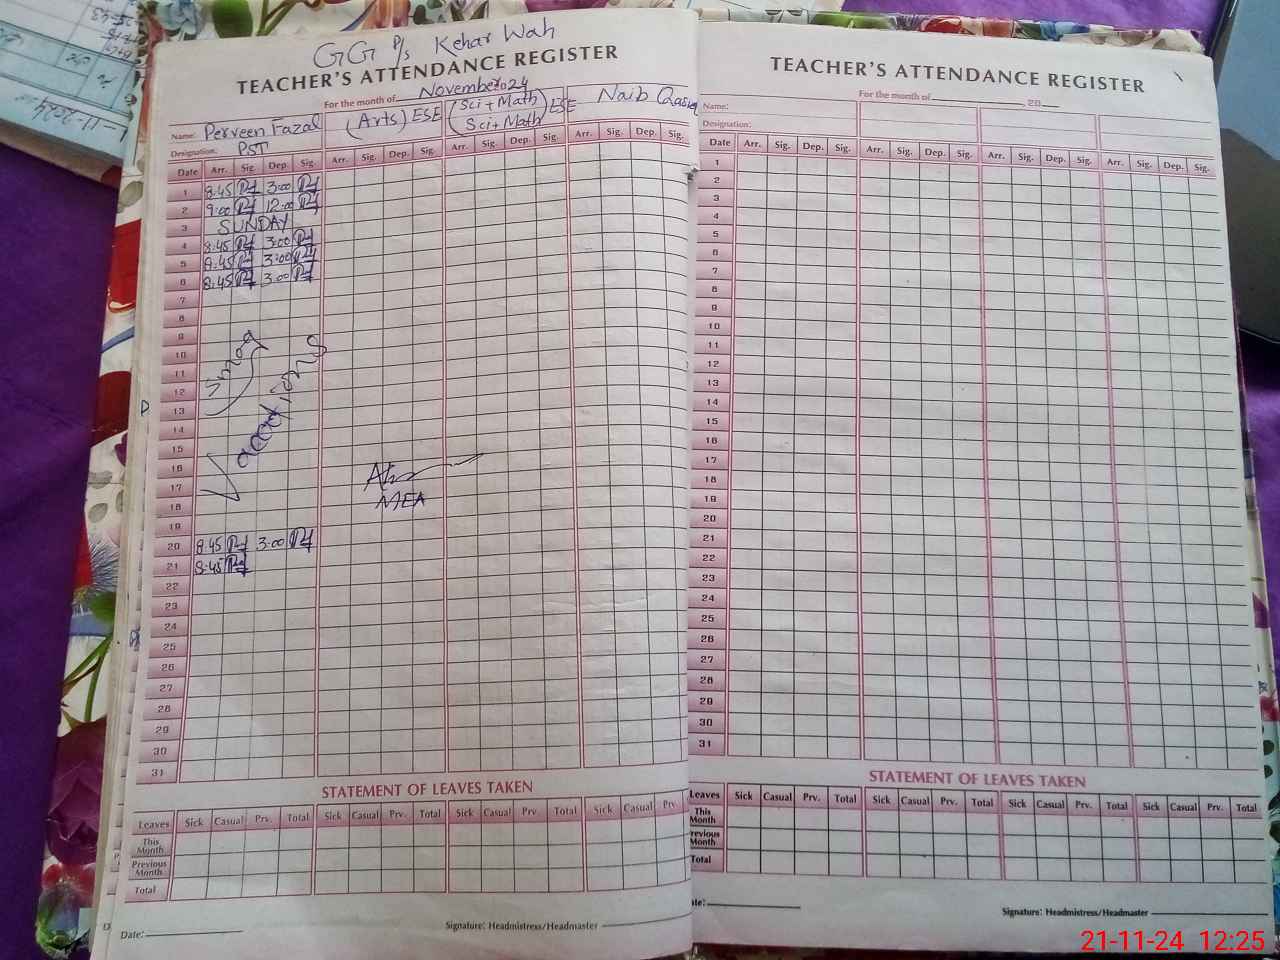 GG P/s Kehar Wah
TEACHER'S ATTENDANCE REGISTER
For the month of November 2024
Name: Perveen Fazal (Arts) ESE (Sci + Math) ESE Naib Qasid
Sci + Math
Designation: PST
Date Arr. Sig. Dep. Sig. Arr. Sig. Dep. Sig. Arr. Sig. Dep. Sig. Arr. Sig. Dep.
1 8:45 3:00
2 9:00 12:00
3 SUNDAY
4 8:45 3:00
5 8:45 3:00
6 8:45 3:00
7
8
9
10
11
12
13
14
15
16
17
18
19
Smog
Vacations
MEA
20 8:45 3:00
21 8:45
22
23
24
25
26
27
28
29
30
31
STATEMENT OF LEAVES TAKEN
Leaves Sick Casual Prv. Total Sick Casual Prv. Total Sick Casual Prv. Total Sick Casual Prv.
This Month
Previous Month
Total
Date:
Signature: Headmistress/Headmaster
TEACHER'S ATTENDANCE REGISTER
For the month of 20
Name:
Designation:
Date Arr. Sig. Dep. Sig. Arr. Sig. Dep. Sig. Arr. Sig. Dep. Sig. Arr. Sig. Dep. Sig.
1
2
3
4
5
6
7
8
9
10
11
12
13
14
15
16
17
18
19
20
21
22
23
24
25
26
27
28
29
30
31
STATEMENT OF LEAVES TAKEN
Leaves Sick Casual Prv. Total Sick Casual Prv. Total Sick Casual Prv. Total Sick Casual Prv. Total
This Month
Previous Month
Total
Date:
Signature: Headmistress/Headmaster
21-11-24 12:25